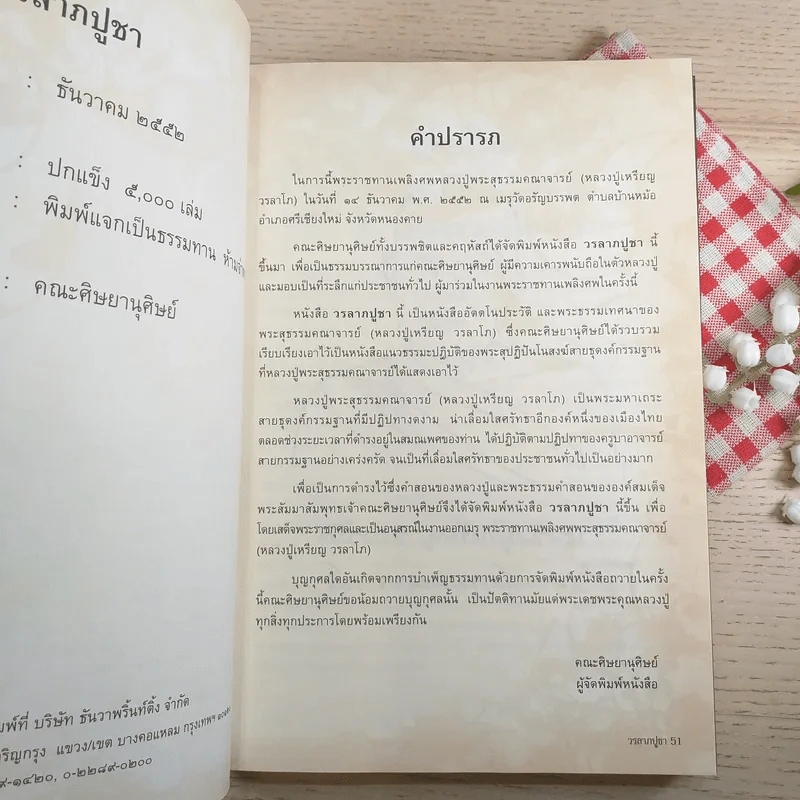 วรลาภปูชา
: ธันวาคม ๒๕๕๒
: ปกแข็ง ๕,๐๐๐ เล่ม
: พิมพ์แจกเป็นธรรมทาน
: คณะศิษยานุศิษย์
ที่ บริษัท ธันวาพริ้นท์ติ้ง จำกัด
แขวง/เขต บางคอแหลม กรุงเทพฯ
๐-๒๒๘๙-๐๒๐๐
คำปรารภ
ในการนี้พระราชทานเพลิงศพหลวงปู่พระสุธรรมคณาจารย์ (หลวงปู่เหรียญ
วรลาโภ) ในวันที่ ๑๔ ธันวาคม พ.ศ. ๒๕๕๒ ณ เมรุวัดอรัญบรรพต ตำบลบ้านหม้อ
อำเภอศรีเชียงใหม่ จังหวัดหนองคาย
คณะศิษยานุศิษย์ทั้งบรรพชิตและคฤหัสถ์ได้จัดพิมพ์หนังสือ วรลาภปูชา นี้
ขึ้นมา เพื่อเป็นธรรมบรรณาการแก่คณะศิษยานุศิษย์ ผู้มีความเคารพนับถือในตัวหลวงปู่
และมอบเป็นที่ระลึกแก่ประชาชนทั่วไป ผู้มาร่วมในงานพระราชทานเพลิงศพในครั้งนี้
หนังสือ วรลาภปูชา นี้ เป็นหนังสืออัตตโนประวัติ และพระธรรมเทศนาของ
พระสุธรรมคณาจารย์ (หลวงปู่เหรียญ วรลาโภ) ซึ่งคณะศิษยานุศิษย์ได้รวบรวม
เรียบเรียงเอาไว้เป็นหนังสือแนวธรรมะปฏิบัติของพระสุปฏิปันโนสงฆ์สายธุดงค์กรรมฐาน
ที่หลวงปู่พระสุธรรมคณาจารย์ได้แสดงเอาไว้
หลวงปู่พระสุธรรมคณาจารย์ (หลวงปู่เหรียญ วรลาโภ) เป็นพระมหาเถระ
สายธุดงค์กรรมฐานที่มีปฏิปทางดงาม น่าเลื่อมใสศรัทธาอีกองค์หนึ่งของเมืองไทย
ตลอดช่วงระยะเวลาที่ดำรงอยู่ในสมณเพศของท่าน ได้ปฏิบัติตามปฏิปทาของครูบาอาจารย์
สายกรรมฐานอย่างเคร่งครัด จนเป็นที่เลื่อมใสศรัทธาของประชาชนทั่วไปเป็นอย่างมาก
เพื่อเป็นการดำรงไว้ซึ่งคำสอนของหลวงปู่และพระธรรมคำสอนขององค์สมเด็จ
พระสัมมาสัมพุทธเจ้าคณะศิษยานุศิษย์จึงได้จัดพิมพ์หนังสือ วรลาภปูชา นี้ขึ้น เพื่อ
โดยเสด็จพระราชกุศลและเป็นอนุสรณ์ในงานออกเมรุ พระราชทานเพลิงศพพระสุธรรมคณาจารย์
(หลวงปู่เหรียญ วรลาโภ)
บุญกุศลใดอันเกิดจากการบำเพ็ญธรรมทานด้วยการจัดพิมพ์หนังสือถวายในครั้ง
นี้คณะศิษยานุศิษย์ขอน้อมถวายบุญกุศลนั้น เป็นปัตติทานมัยแด่พระเดชพระคุณหลวงปู่
ทุกสิ่งทุกประการโดยพร้อมเพรียงกัน
คณะศิษยานุศิษย์
ผู้จัดพิมพ์หนังสือ
วรลาภปูชา 51